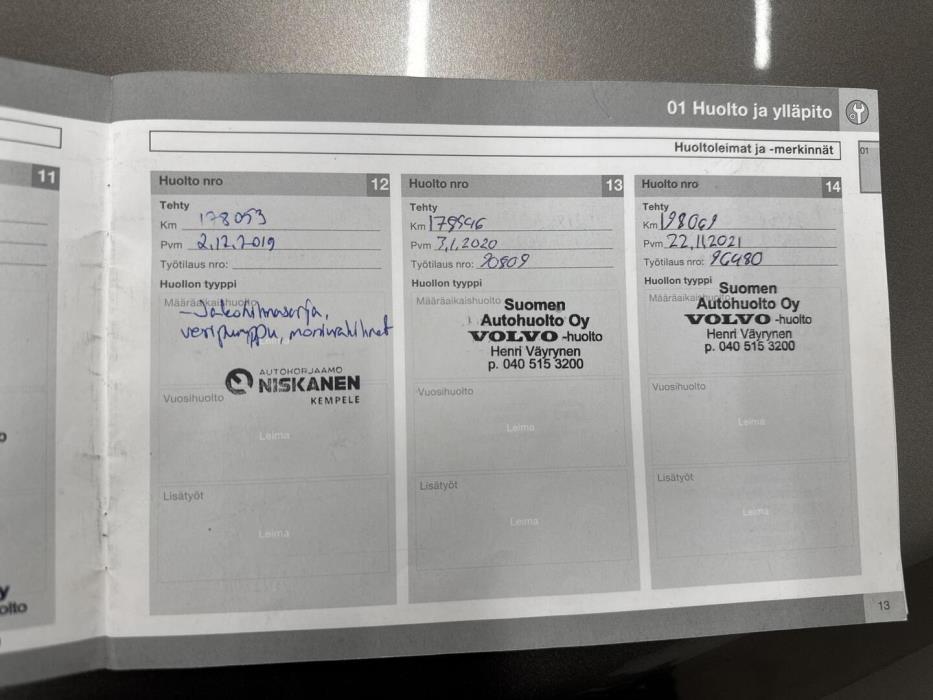 01 Huolto ja ylläpito
01
Huoltoleimat ja -merkinnät
11
olto
Huolto nro 12
Tehty
Km 178053
Pvm 2.12.2019
Työtilaus nro:
Huollon tyyppi
Määräaikaishuolto
- Jakohihnasarja,
vesipumppu, moniurahihnat
AUTOKORJAAMO
NISKANEN
KEMPELE
Vuosihuolto
Leima
Lisätyöt
Leima
Huolto nro 13
Tehty
Km 178546
Pvm 3.1.2020
Työtilaus nro: 90809
Huollon tyyppi
Määräaikaishuolto
Suomen
Autohuolto Oy
VOLVO -huolto
Henri Väyrynen
p. 040 515 3200
Vuosihuolto
Leima
Lisätyöt
Leima
Huolto nro 14
Tehty
Km 198061
Pvm 22.11.2021
Työtilaus nro: 96480
Huollon tyyppi
Määräaikaishuolto
Suomen
Autohuolto Oy
VOLVO -huolto
Henri Väyrynen
p. 040 515 3200
Vuosihuolto
Leima
Lisätyöt
Leima
13